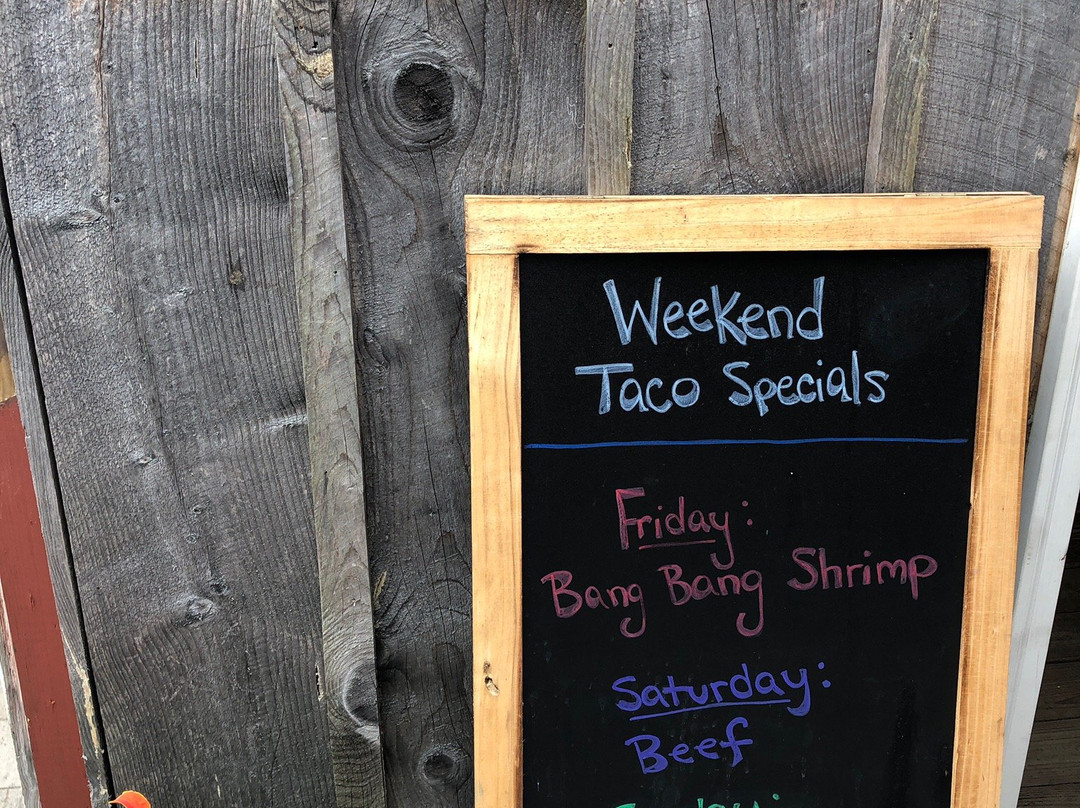 Weekend
Taco Specials
Friday:
Bang Bang Shrimp
Saturday:
Beef